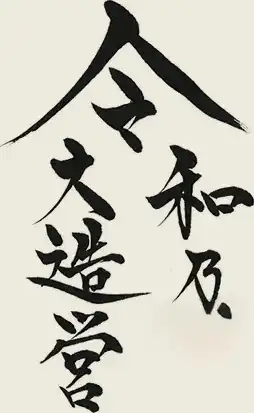 令和乃
大造営